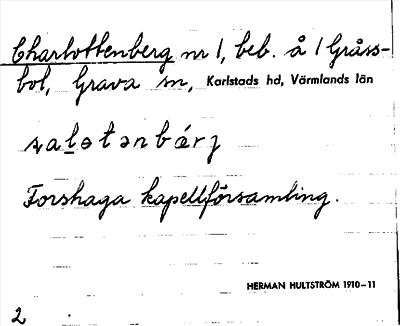 Charlottenberg nr 1, beb. å 1 Gråss-
bol, Grava sn, Karlstads hd, Värmlands län
Forshaga kapellförsamling.
HERMAN HULTSTRÖM 1910–11
2